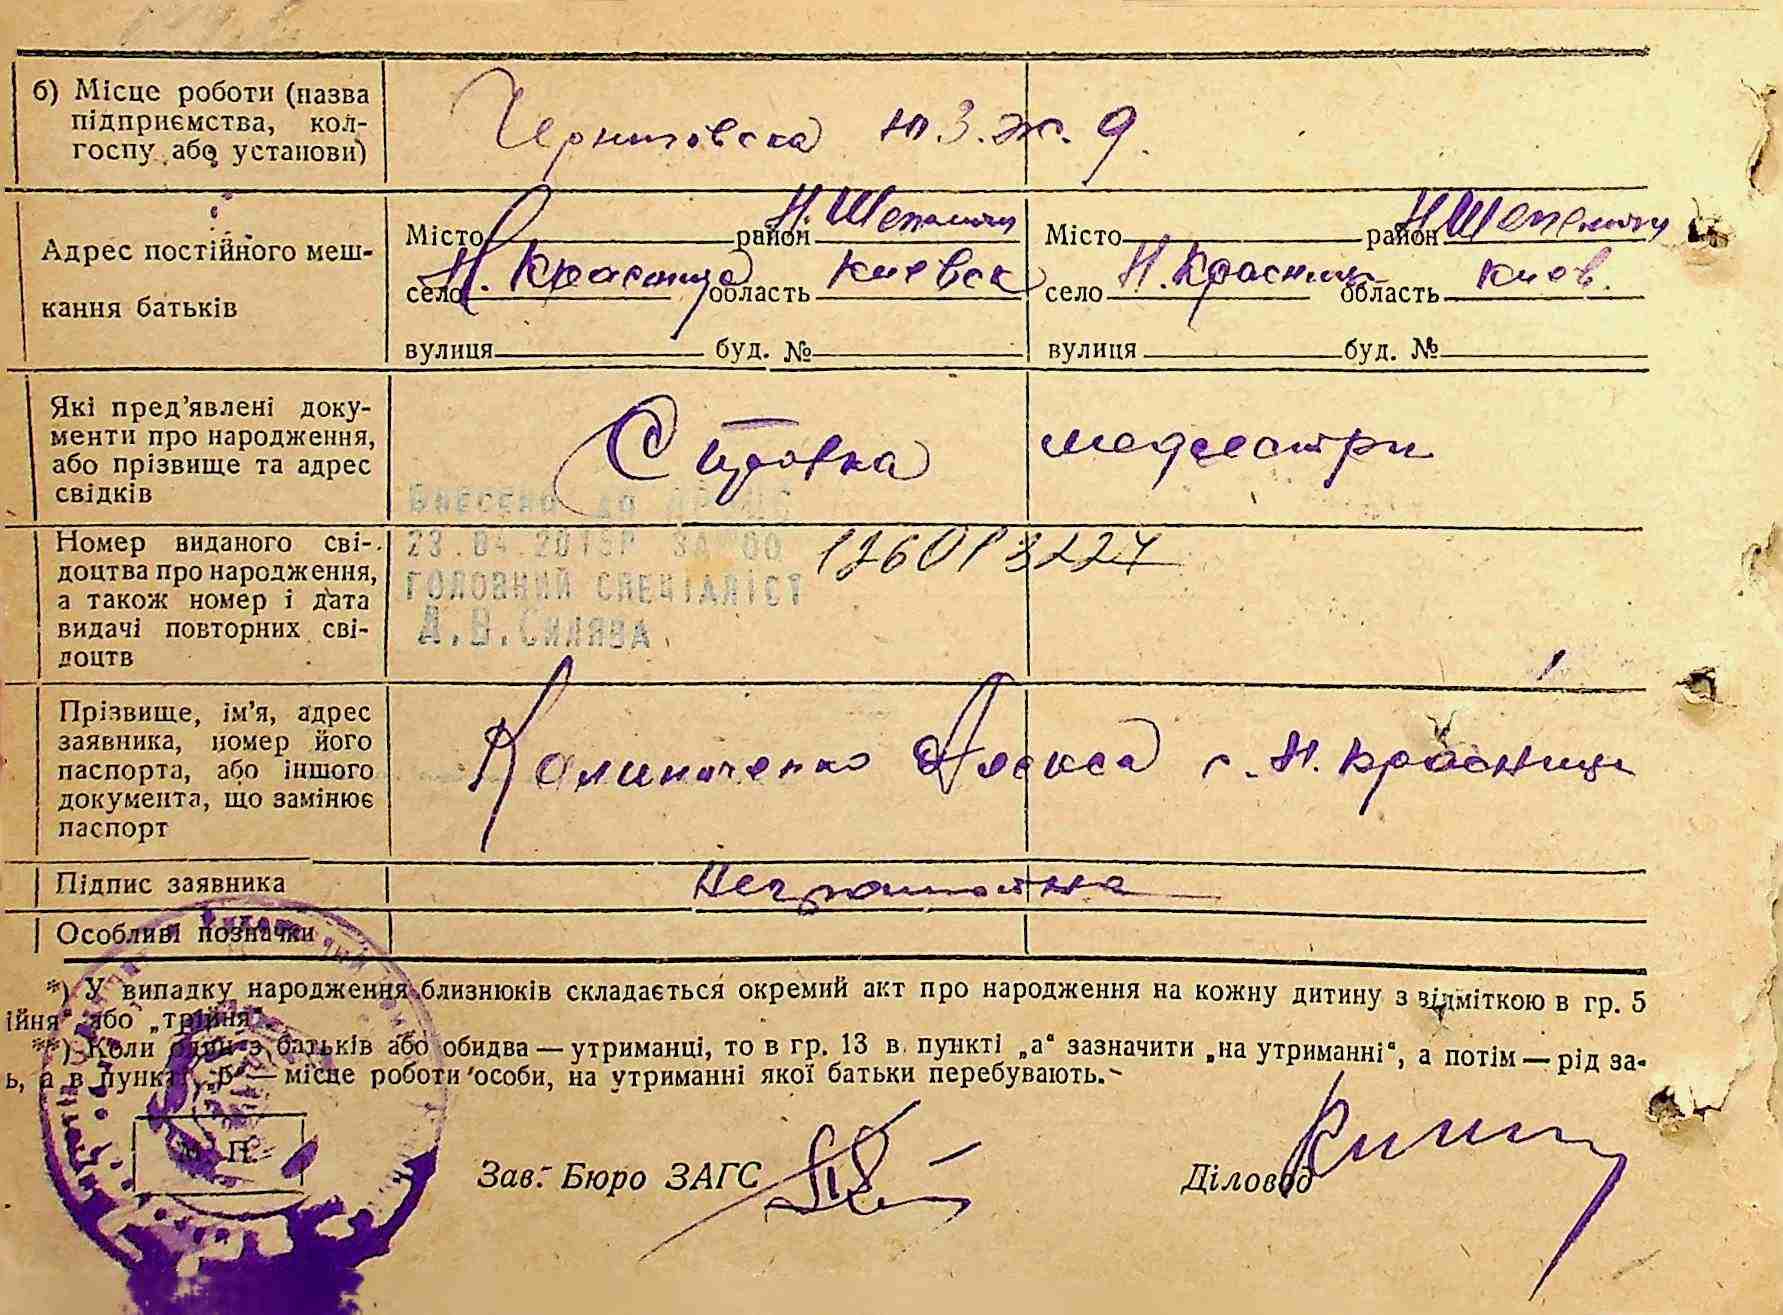 б) Місце роботи (назва
підприємства, кол-
госпу або установи)
Чернигівска ю. з. ж. д.
Адрес постійного меш-
кання батьків
Місто район Н. Шепеличи Місто район Н Шепеличи
село Н. Красница область Киевск село Н. Красниця область Киев.
вулиця буд. № вулиця буд. №
Які пред'явлені доку-
менти про народження,
або прізвище та адрес
свідків
Справка медсестри
Номер виданого сві-
доцтва про народження,
а також номер і дата
видачі повторних сві-
доцтв
Внесено до
23.04.201
ГОЛОВНИЙ СПЕЦІАЛІСТ
Д.В.СИЛЯВА.
Прізвище, ім'я, адрес
заявника, номер його
паспорта, або іншого
документа, що замінює
паспорт
Калиниченко с. Н. Красниця
Підпис заявника Неграмотна
Особливі позначки
*) У випадку народження близнюків складається окремий акт про народження на кожну дитину з відміткою в гр. 5
ійня“ або „трійня“.
**) Коли один з батьків або обидва — утриманці, то в гр. 13 в пункті „а“ зазначити „на утриманні“, а потім — рід за-
ь, а в пункті „б“ — місце роботи особи, на утриманні якої батьки перебувають.
М. П.
Зав. Бюро ЗАГС Діловод